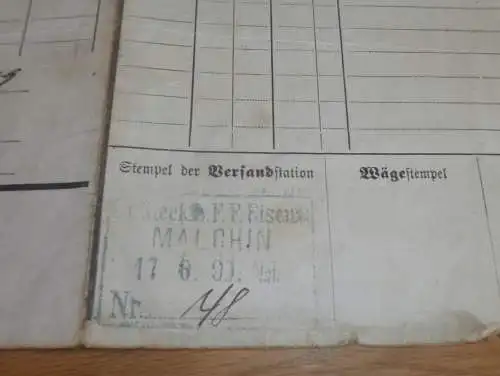 Stempel der Versandstation
Wägestempel
Meckl. F. F. Eisenb.
MALCHIN
17 6.
Nr. 48